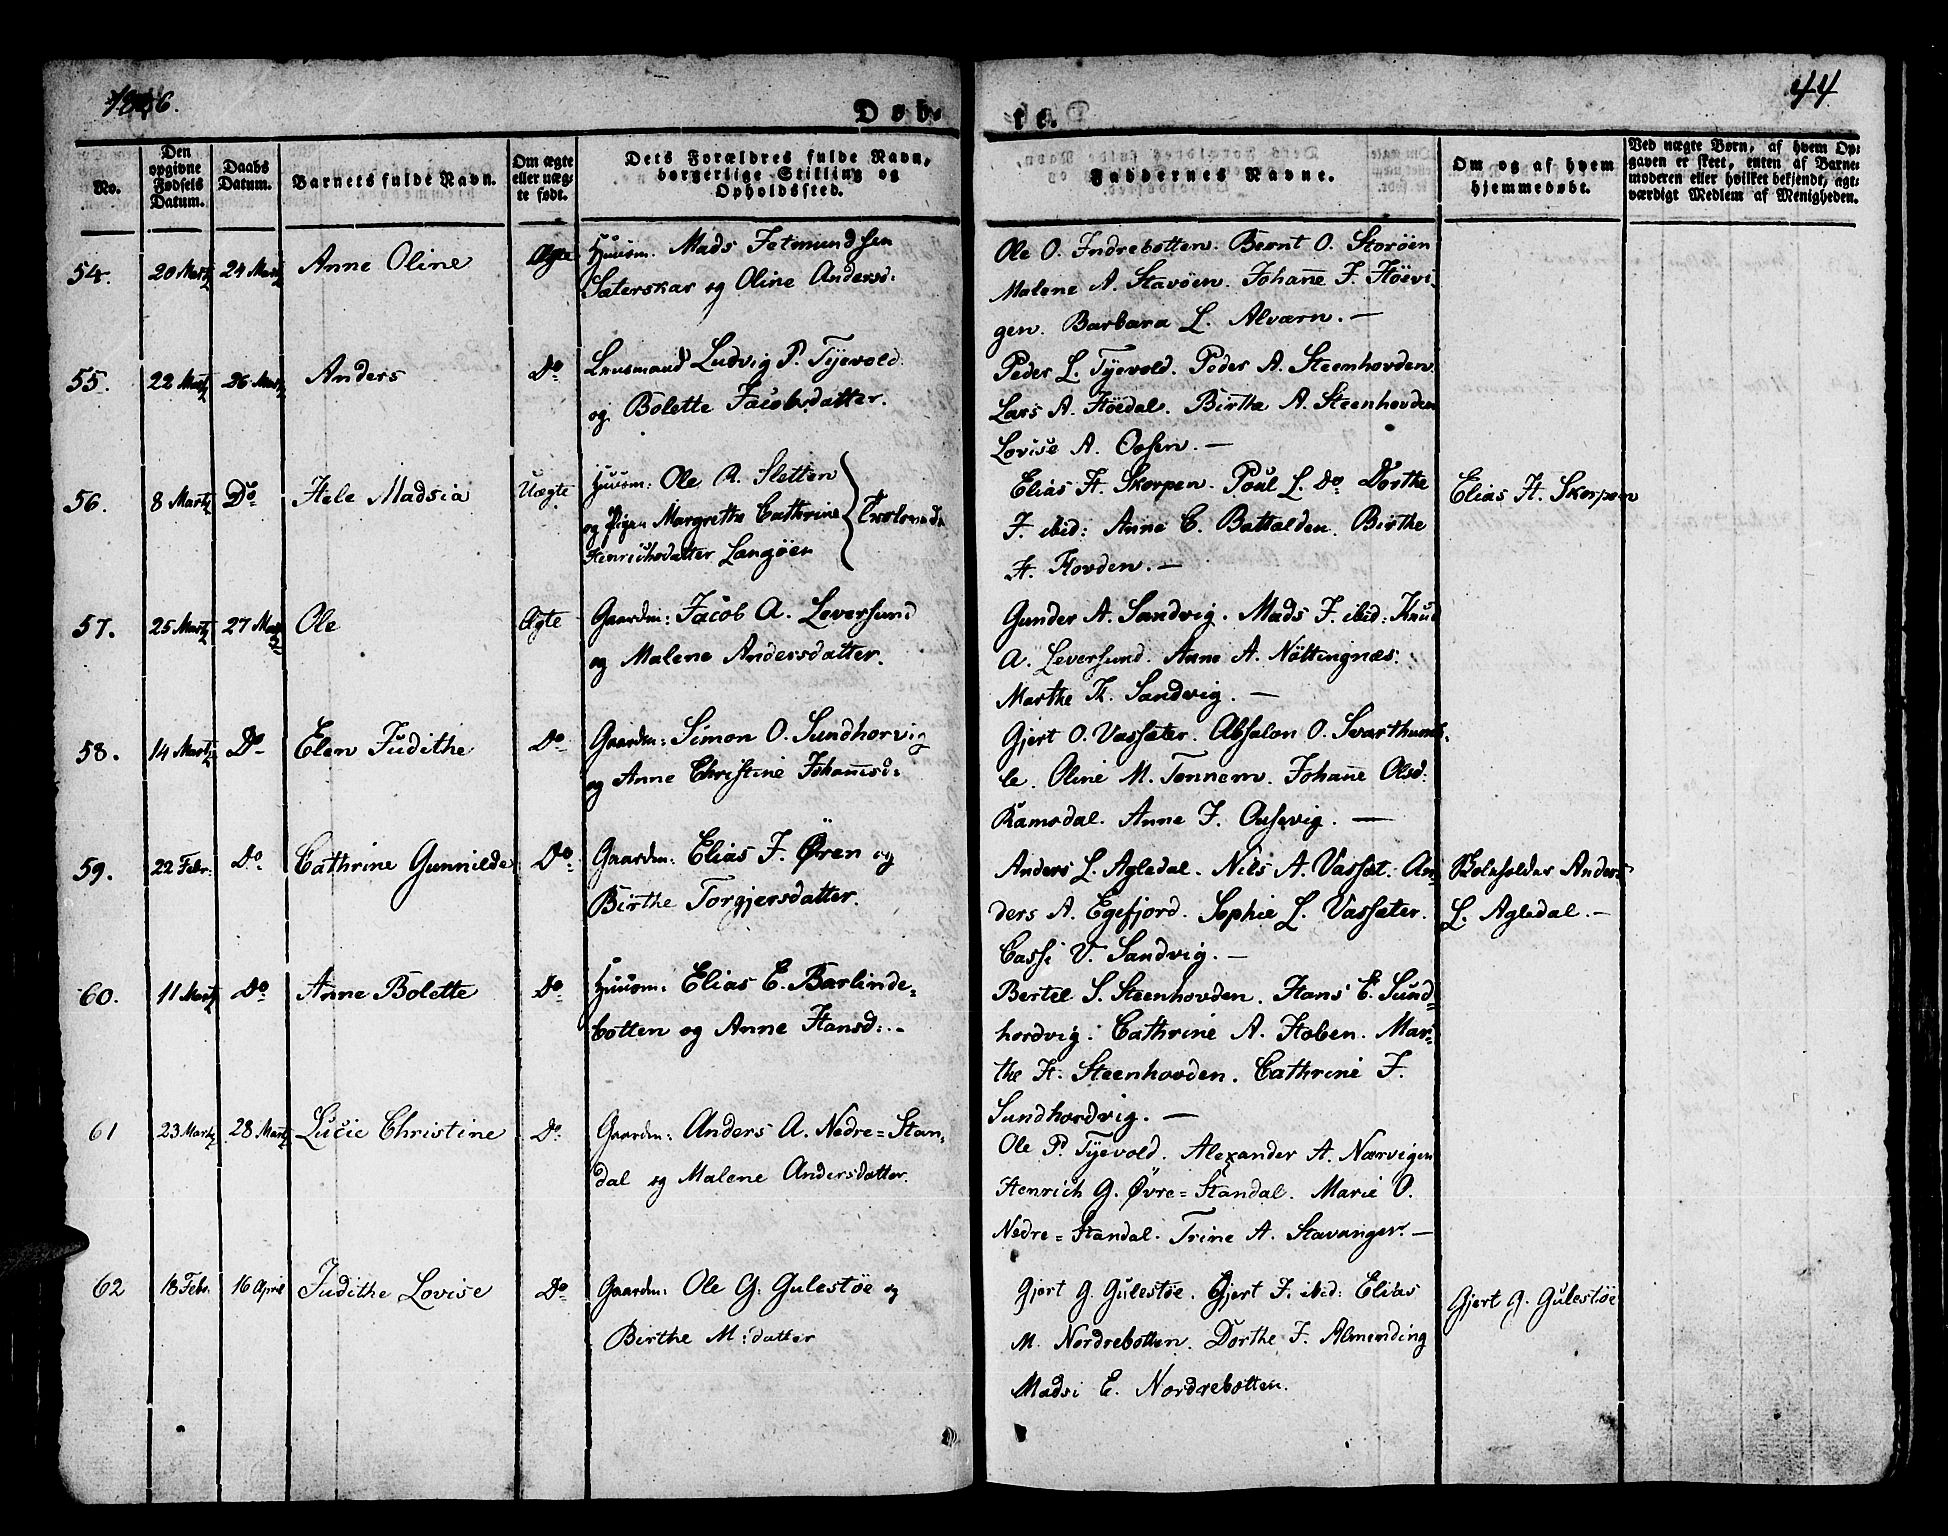 1836.
Døb-
te.
44
No.
Den opgivne Fødsels Datum.
Daabs Datum.
Barnets fulde Navn.
Om ægte eller uæg-te født.
Dets Forældres fulde Navn, borgerlige Stilling og Opholdssted.
Faddernes Navne.
Om og af hvem hjemmedøbt.
Ved uægte Børn, af hvem Op-gaven er skeet, enten af Barne-moderen eller hvilket bekjendt, agt-værdigt Medlem af Menigheden.
54. 20 Martz 24 Martz Anne Oline Ægte Huusm. Mads Jetmundsen
Sæterskar og Oline Andersd:
Ole O. Indrebotten. Bernt O. Storøen
Malene A. Stavøen. Johanne J. Høevi-
gen. Barbara L. Alværn. —
55. 22 Martz 26 Martz Anders Do Lensmand Ludvig P. Tyevold
og Bolette Jacobsdatter.
Peder L. Tyevold. Peder A. Steenhovden
Lars A. Høedal. Birthe A. Steenhovden
Lovise A. Osen. —
56. 8 Martz Do Hele Madsia Uægte Huusm: Ole R. Sletten
og Pigen Margrethe Cathrine
Henrichsdatter Langøen
Elias H. Skorpen. Poul L. Do Dorthe
J. ibid: Anne C. Battalden. Birthe
H. Hovden. —
Elias H. Skorpen
57. 25 Martz 27 Martz Ole Ægte Gaardm: Jacob A. Leversund
og Malene Andersdatter.
Gunder A. Sandvig. Mads J. ibid: Knud
A. Leversund. Anne A. Nøttingnæs.
Marthe K. Sandvig. —
58. 14 Martz Do Elen Judithe Do Gaardm: Simon O. Sundhorvig
og Anne Christine Johannsd:
Gjert O. Vassæter. Absalon O. Svarthumb-
le. Oline M. Tonnem. Johanne Olsd:
Ramsdal. Anne J. Ousevig. —
59. 22 Febr: Do Cathrine Gunnilde Do Gaardm: Elias J. Øren og
Birthe Torgjersdatter.
Anders L. Agledal. Nils A. Vassæt. An-
ders A. Egefjord. Sophie L. Vassæter.
Casse V. Sandvig. —
Skoleholder Anders
L. Agledal. —
60. 11 Martz Do Anne Bolette Do Huusm: Elias E. Barlinde-
botten og Anne Hansd: -
Bertel S. Steenhovden. Hans E. Sund-
hordvig. Cathrine A. Hoben. Mar-
the H. Steenhovden. Cathrine J.
Sundhordvig. —
61 23 Martz 28 Martz Lucie Christine Do Gaardm: Anders A. Nedre=Stan-
dal og Malene Andersdatter.
Ole P. Tyevold. Alexander A. Nærvigen
Henrich G. Øvre=Standal. Marie O.
Nedre=Standal. Trine A. Stavanger. —
62 18 Febr. 16 April Judithe Lovise Do Gaardm: Ole G. Gulestøe og
Birthe M:datter
Gjert G. Gulestøe. Gjert J. ibid: Elias
M. Nordrebotten. Dorthe J. Almending
Madsi E. Nordrebotten.
Gjert G. Gulestøe